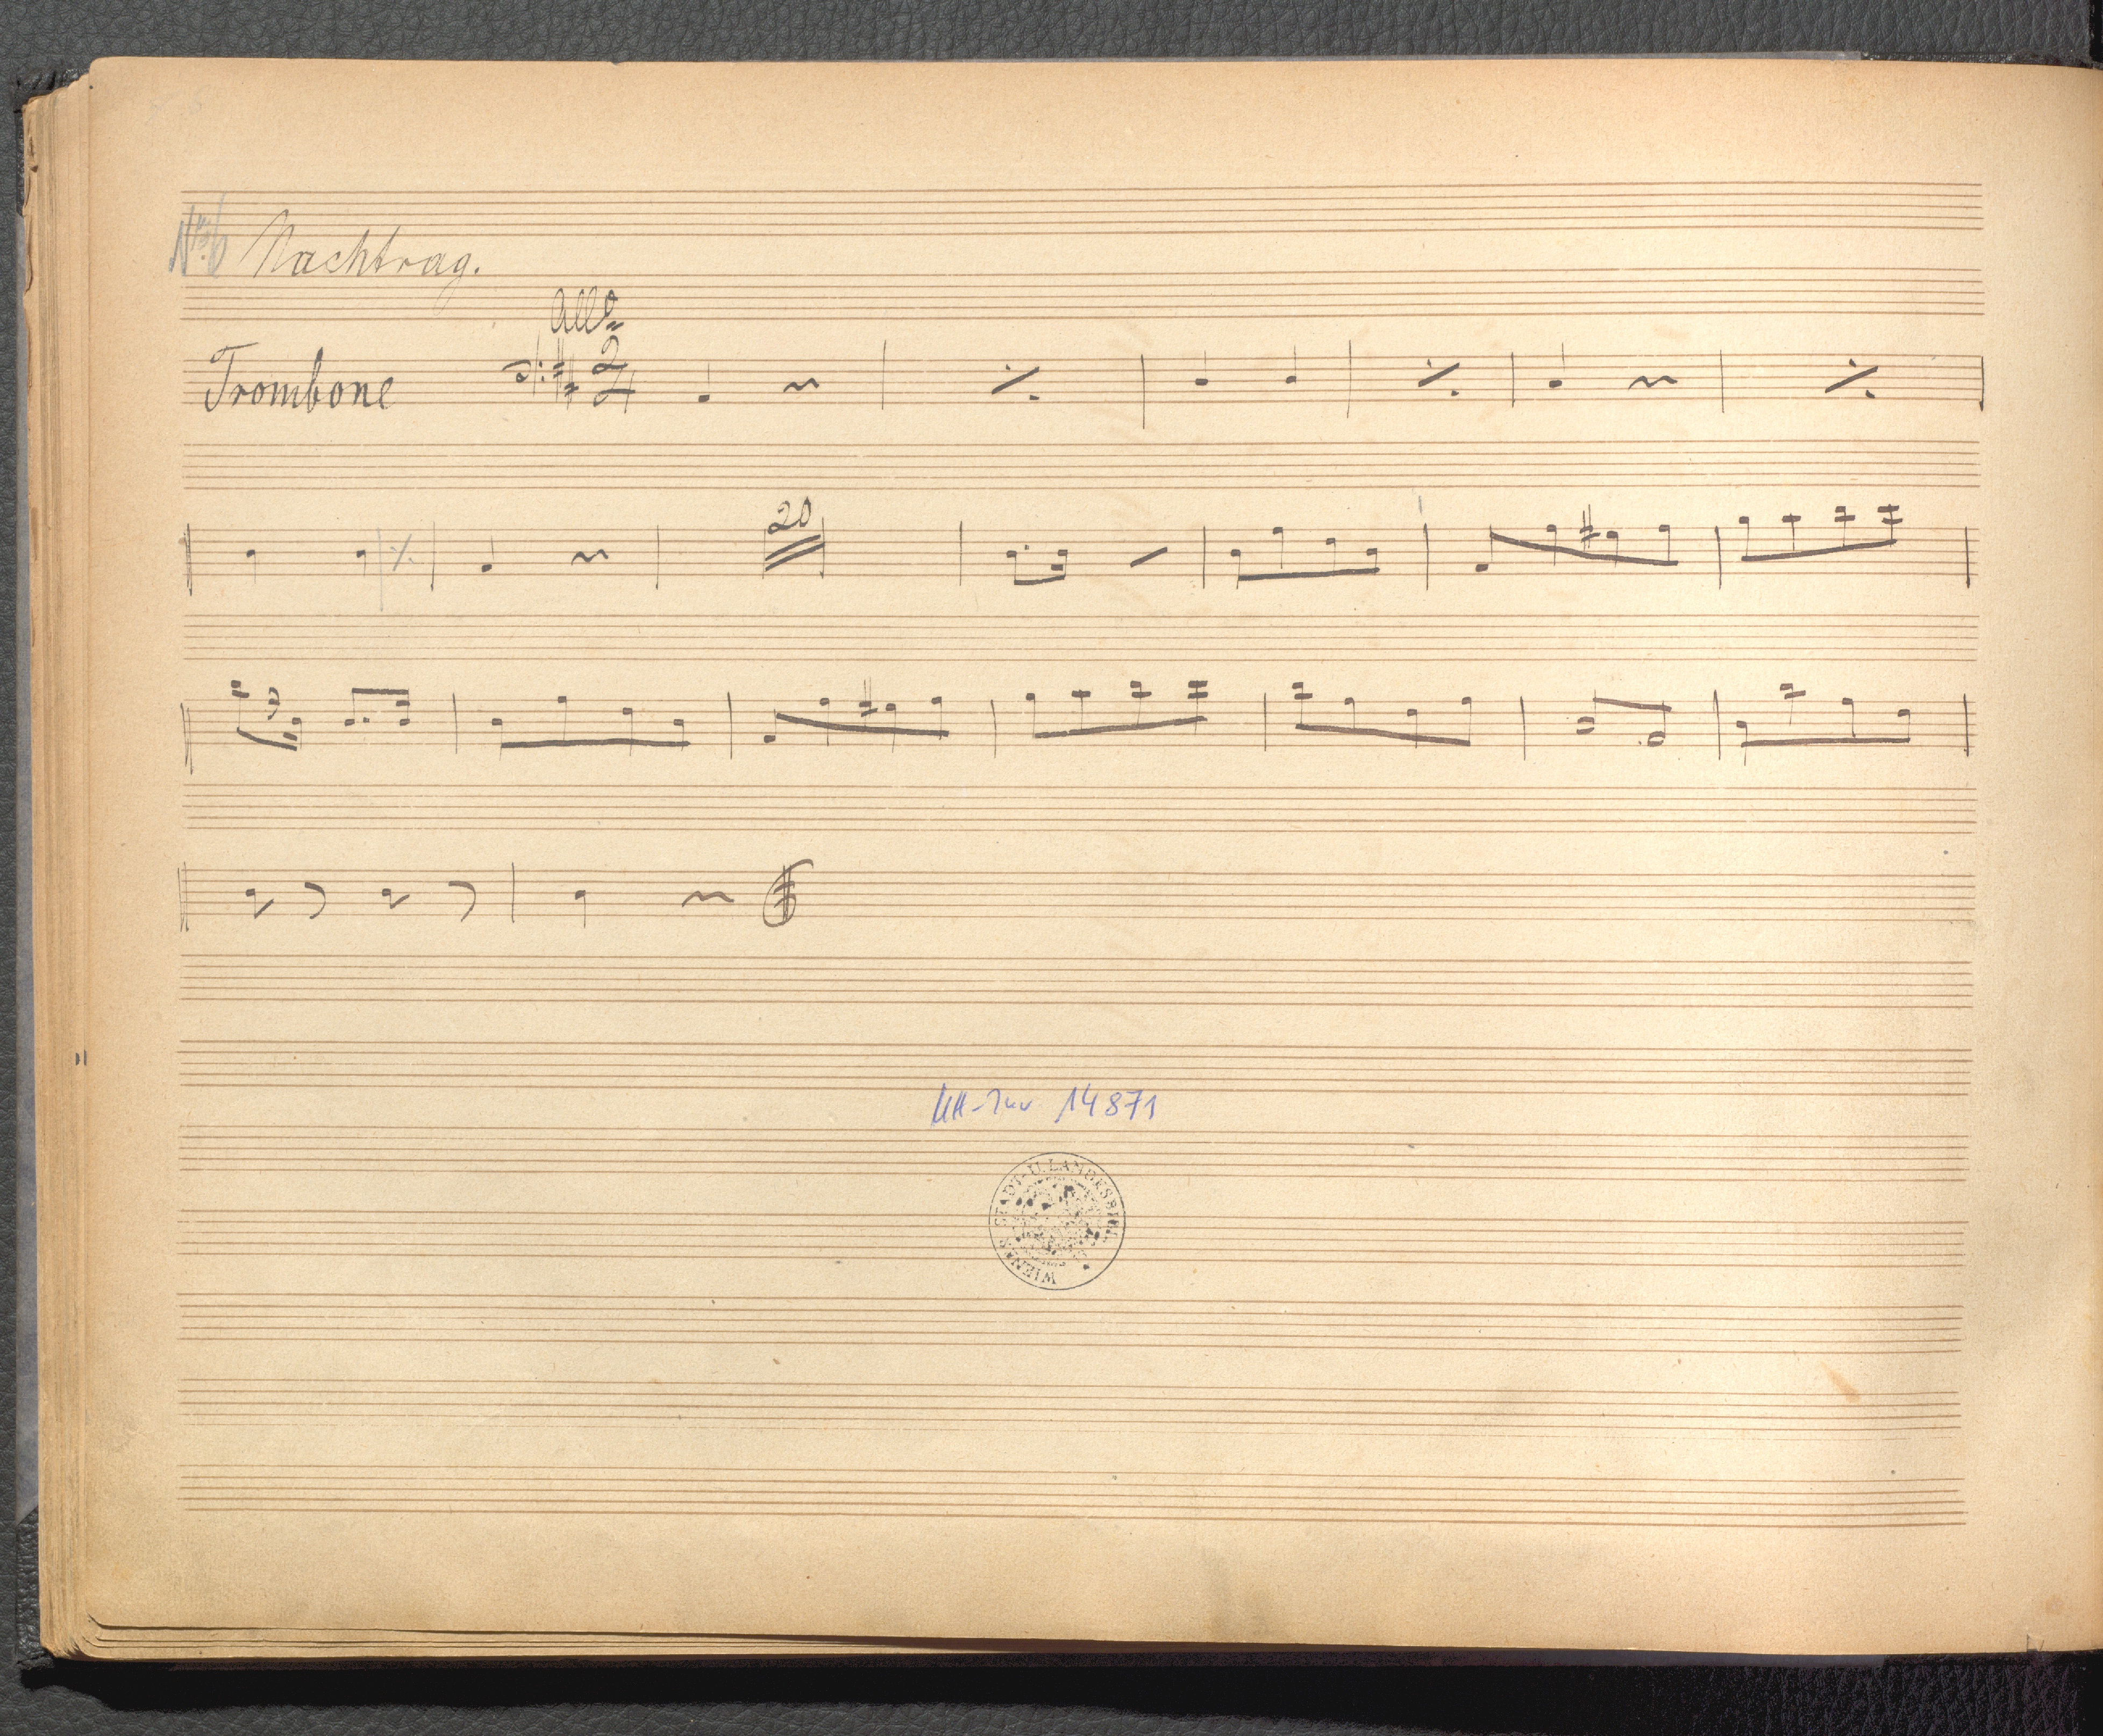 No 6 Nachtrag.
Allo
Trombone 2/4
20
MH-Inv 14871
WIENER STADT-U.LANDESBIBL.